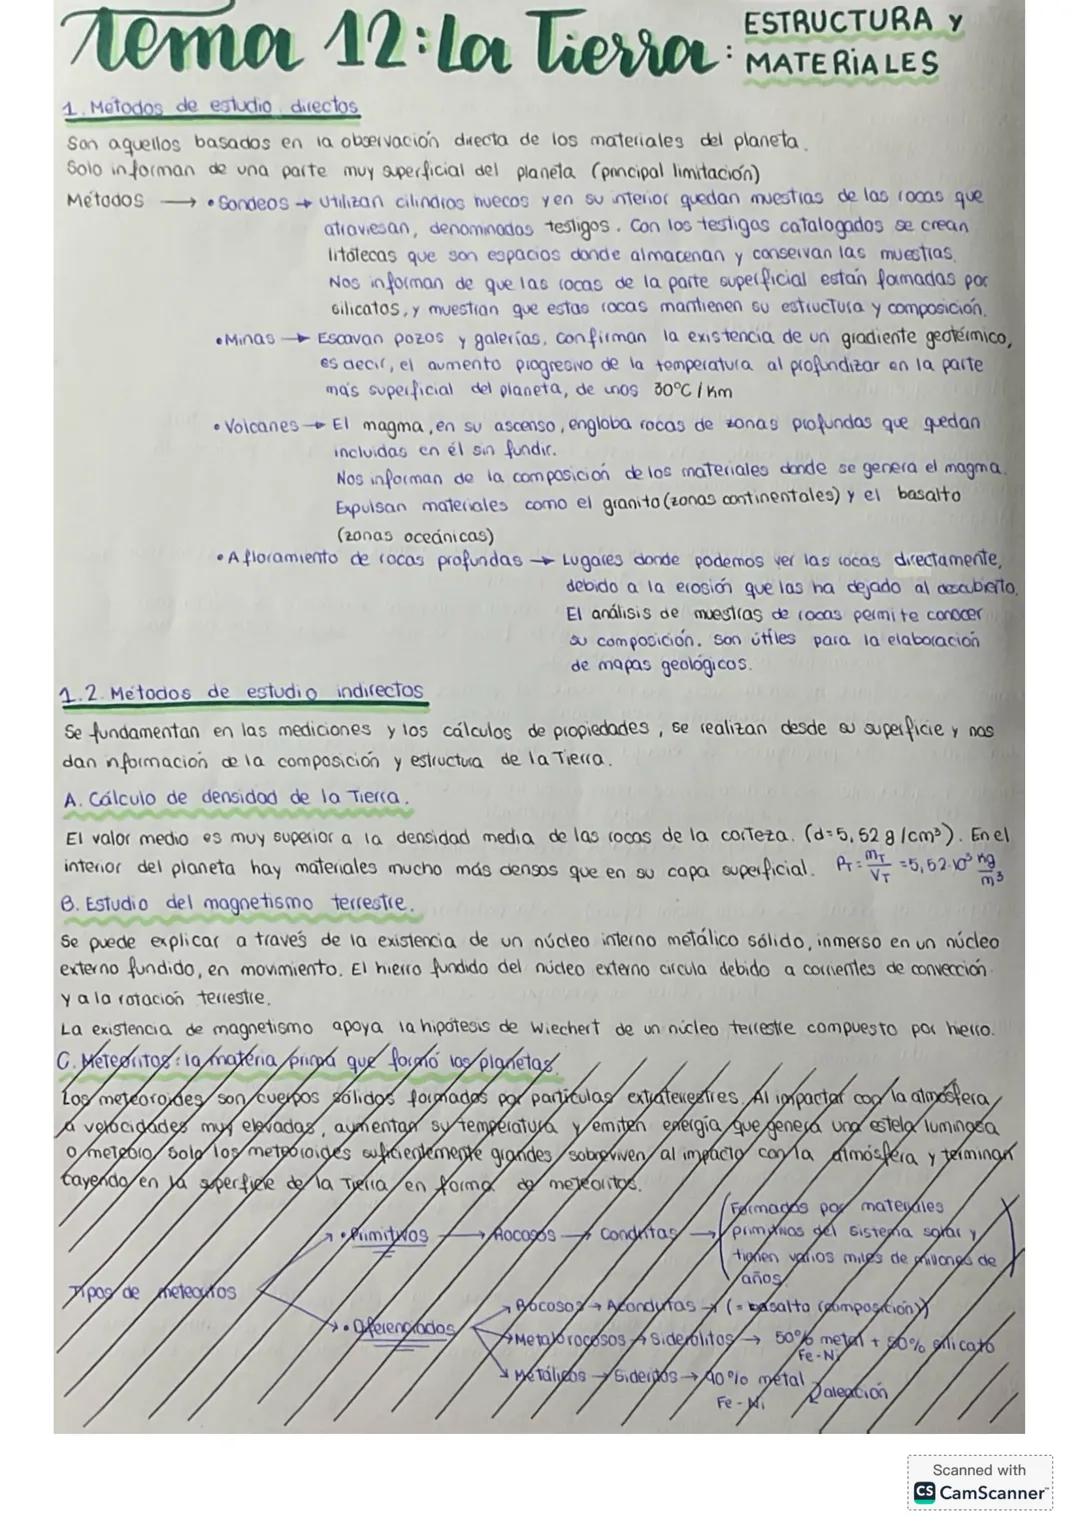 Tema 12: La Tierra: ESTRUCTURA Y
MATERIALES
1. Métodos de estudio directos
Son aquellos basados en la observación directa de los materiales del planeta.
Solo informan de una parte muy superficial del planeta (principal limitación)
Métodos → • Sondeos → Utilizan cilindros huecos y en su interior quedan muestras de las rocas que
atraviesan, denominados testigos. Con los testigos catalogados se crean
litotecas que son espacios donde almacenan y conservan las muestras.
Nos informan de que las rocas de la parte superficial están formadas por
silicatos, y muestran que estas rocas mantienen su estructura y composición.
• Minas → Escavan pozos y galerías, confirman la existencia de un gradiente geotérmico,
es decir, el aumento progresivo de la temperatura al profundizar en la parte
más superficial del planeta, de unos 30°C / Km
• Volcanes → El magma, en su ascenso, engloba rocas de zonas profundas que quedan
incluidas en él sin fundir.
Nos informan de la composición de los materiales donde se genera el magma.
Expulsan materiales como el granito (zonas continentales) y el basalto
(zonas oceánicas)
• Afloramiento de rocas profundas → Lugares donde podemos ver las rocas directamente,
debido a la erosión que las ha dejado al descubierto.
El análisis de muestras de rocas permite conocer
su composición. Son útiles para la elaboración
de mapas geológicos.
1.2. Métodos de estudio indirectos
Se fundamentan en las mediciones y los cálculos de propiedades, se realizan desde su superficie y nos
dan información de la composición y estructura de la Tierra.
A. Cálculo de densidad de la Tierra.
El valor medio es muy superior a la densidad media de las rocas de la corteza. (d=5,52 g/cm³). En el
interior del planeta hay materiales mucho más densos que en su capa superficial. ρT = mT/VT = 5,52·10³ kg/m³
B. Estudio del magnetismo terrestre.
Se puede explicar a través de la existencia de un núcleo interno metálico sólido, inmerso en un núcleo
externo fundido, en movimiento. El hierro fundido del núcleo externo circula debido a corrientes de convección
y a la rotación terrestre.
La existencia de magnetismo apoya la hipótesis de Wiechert de un núcleo terrestre compuesto por hierro.
C. Meteoritos: la materia prima que formó los planetas.
Los meteoroides son cuerpos sólidos formados por partículas extraterrestres. Al impactar con la atmósfera
a velocidades muy elevadas, aumentan su temperatura y emiten energía que genera una estela luminosa
o meteoro. Solo los meteoroides suficientemente grandes sobreviven al impacto con la atmósfera y terminan
cayendo en la superficie de la Tierra en forma de meteoritos.
Formados por materiales
• Primitivos → Rocosos → Condritas → primitivos del sistema solar y
tienen varios miles de millones de
años.
Tipos de meteoritos
Rocosos → Acondritas → (= basalto (composición))
• Diferenciados → Metalorocosos → Siderolitos → 50% metal + 50% silicato
Fe-Ni
Metálicos → Sideritos → 90% metal
Fe-Ni aleación
Scanned with
CS CamScanner